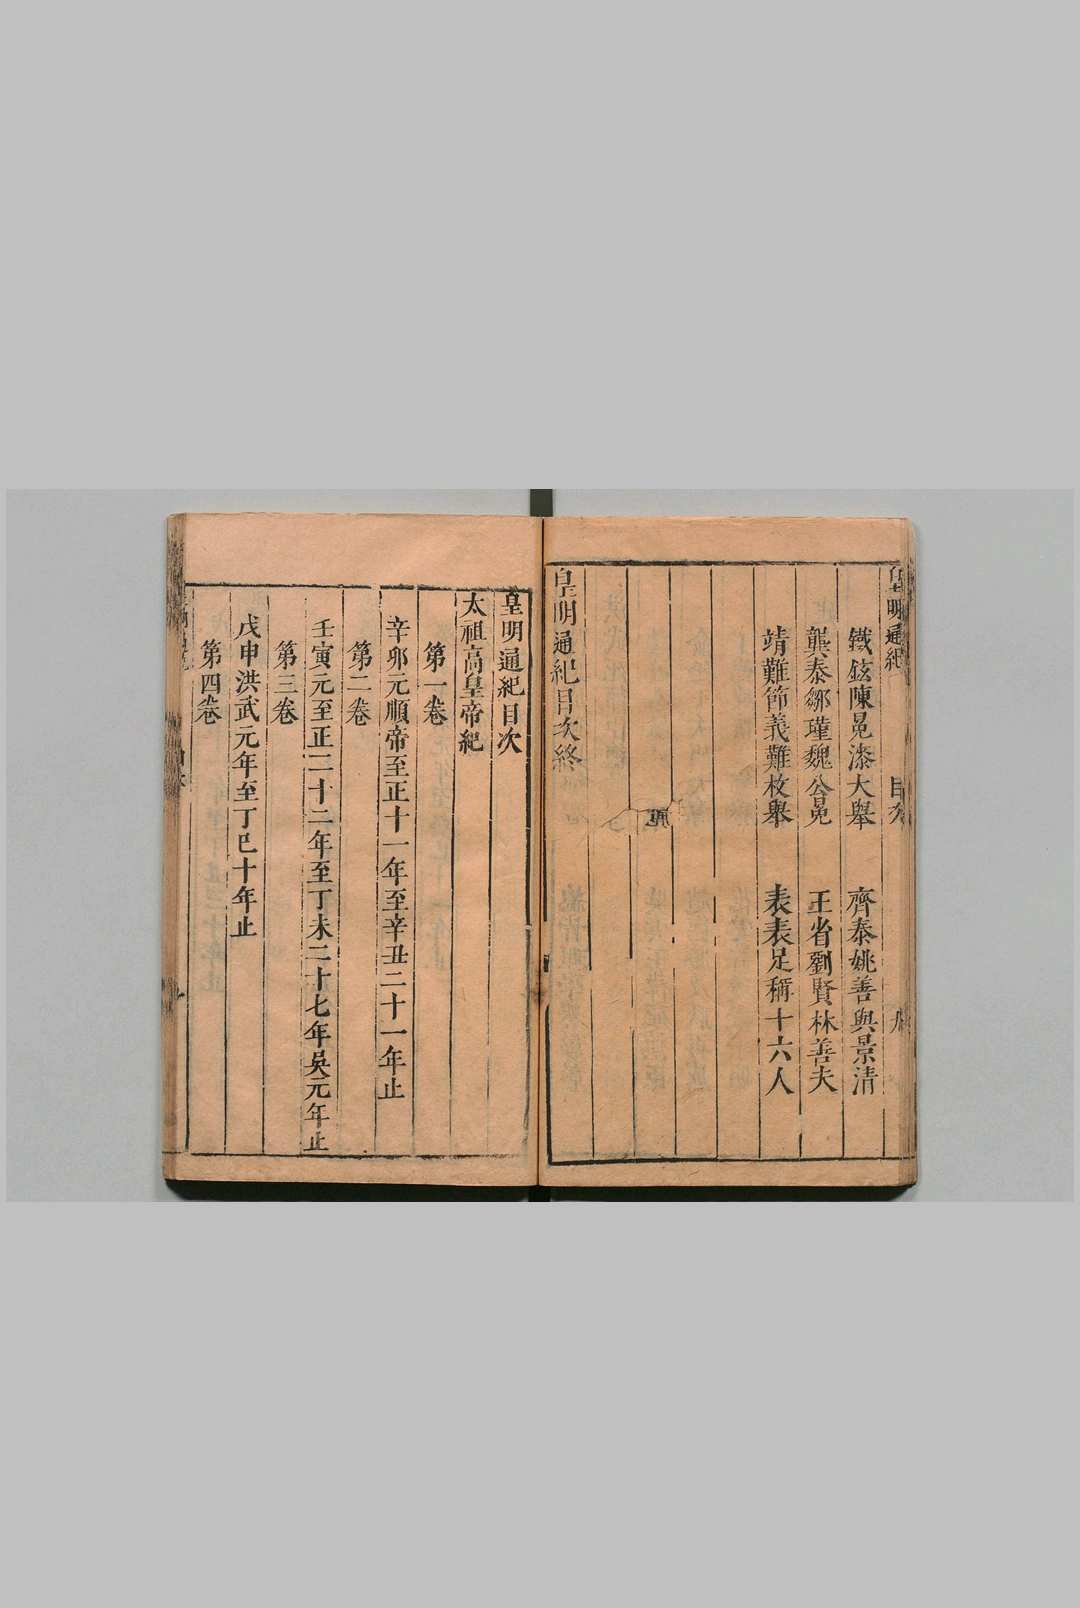 皇明通紀
目次
九
鐵鉉陳晃漆大舉 齊泰姚善與景清
龔泰鄒瑾魏公冕 王省劉賢林善夫
靖難節義難枚舉 表表足稱十六人
皇明通紀目次終
皇明通紀目次
太祖高皇帝紀
第一卷
辛卯元順帝至正十一年至辛丑二十一年止
第二卷
壬寅元至正二十二年至丁未二十七年吳元年止
第三卷
戊申洪武元年至丁巳十年止
第四卷